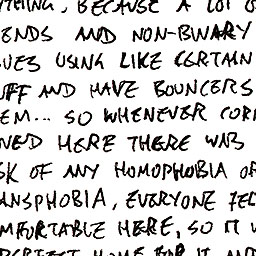 YTHING, BECAUSE A LOT O
ENDS AND NON-BINARY
UES USING LIKE CERTAIN
UFF AND HAVE BOUNCERS
EM... SO WHENEVER COR
NED HERE THERE WAS
SK OF ANY HOMOPHOBIA OR
ANSPHOBIA, EVERYONE FEL
MFORTABLE HERE, SO IT W
PERFECT HOME FOR IT AND